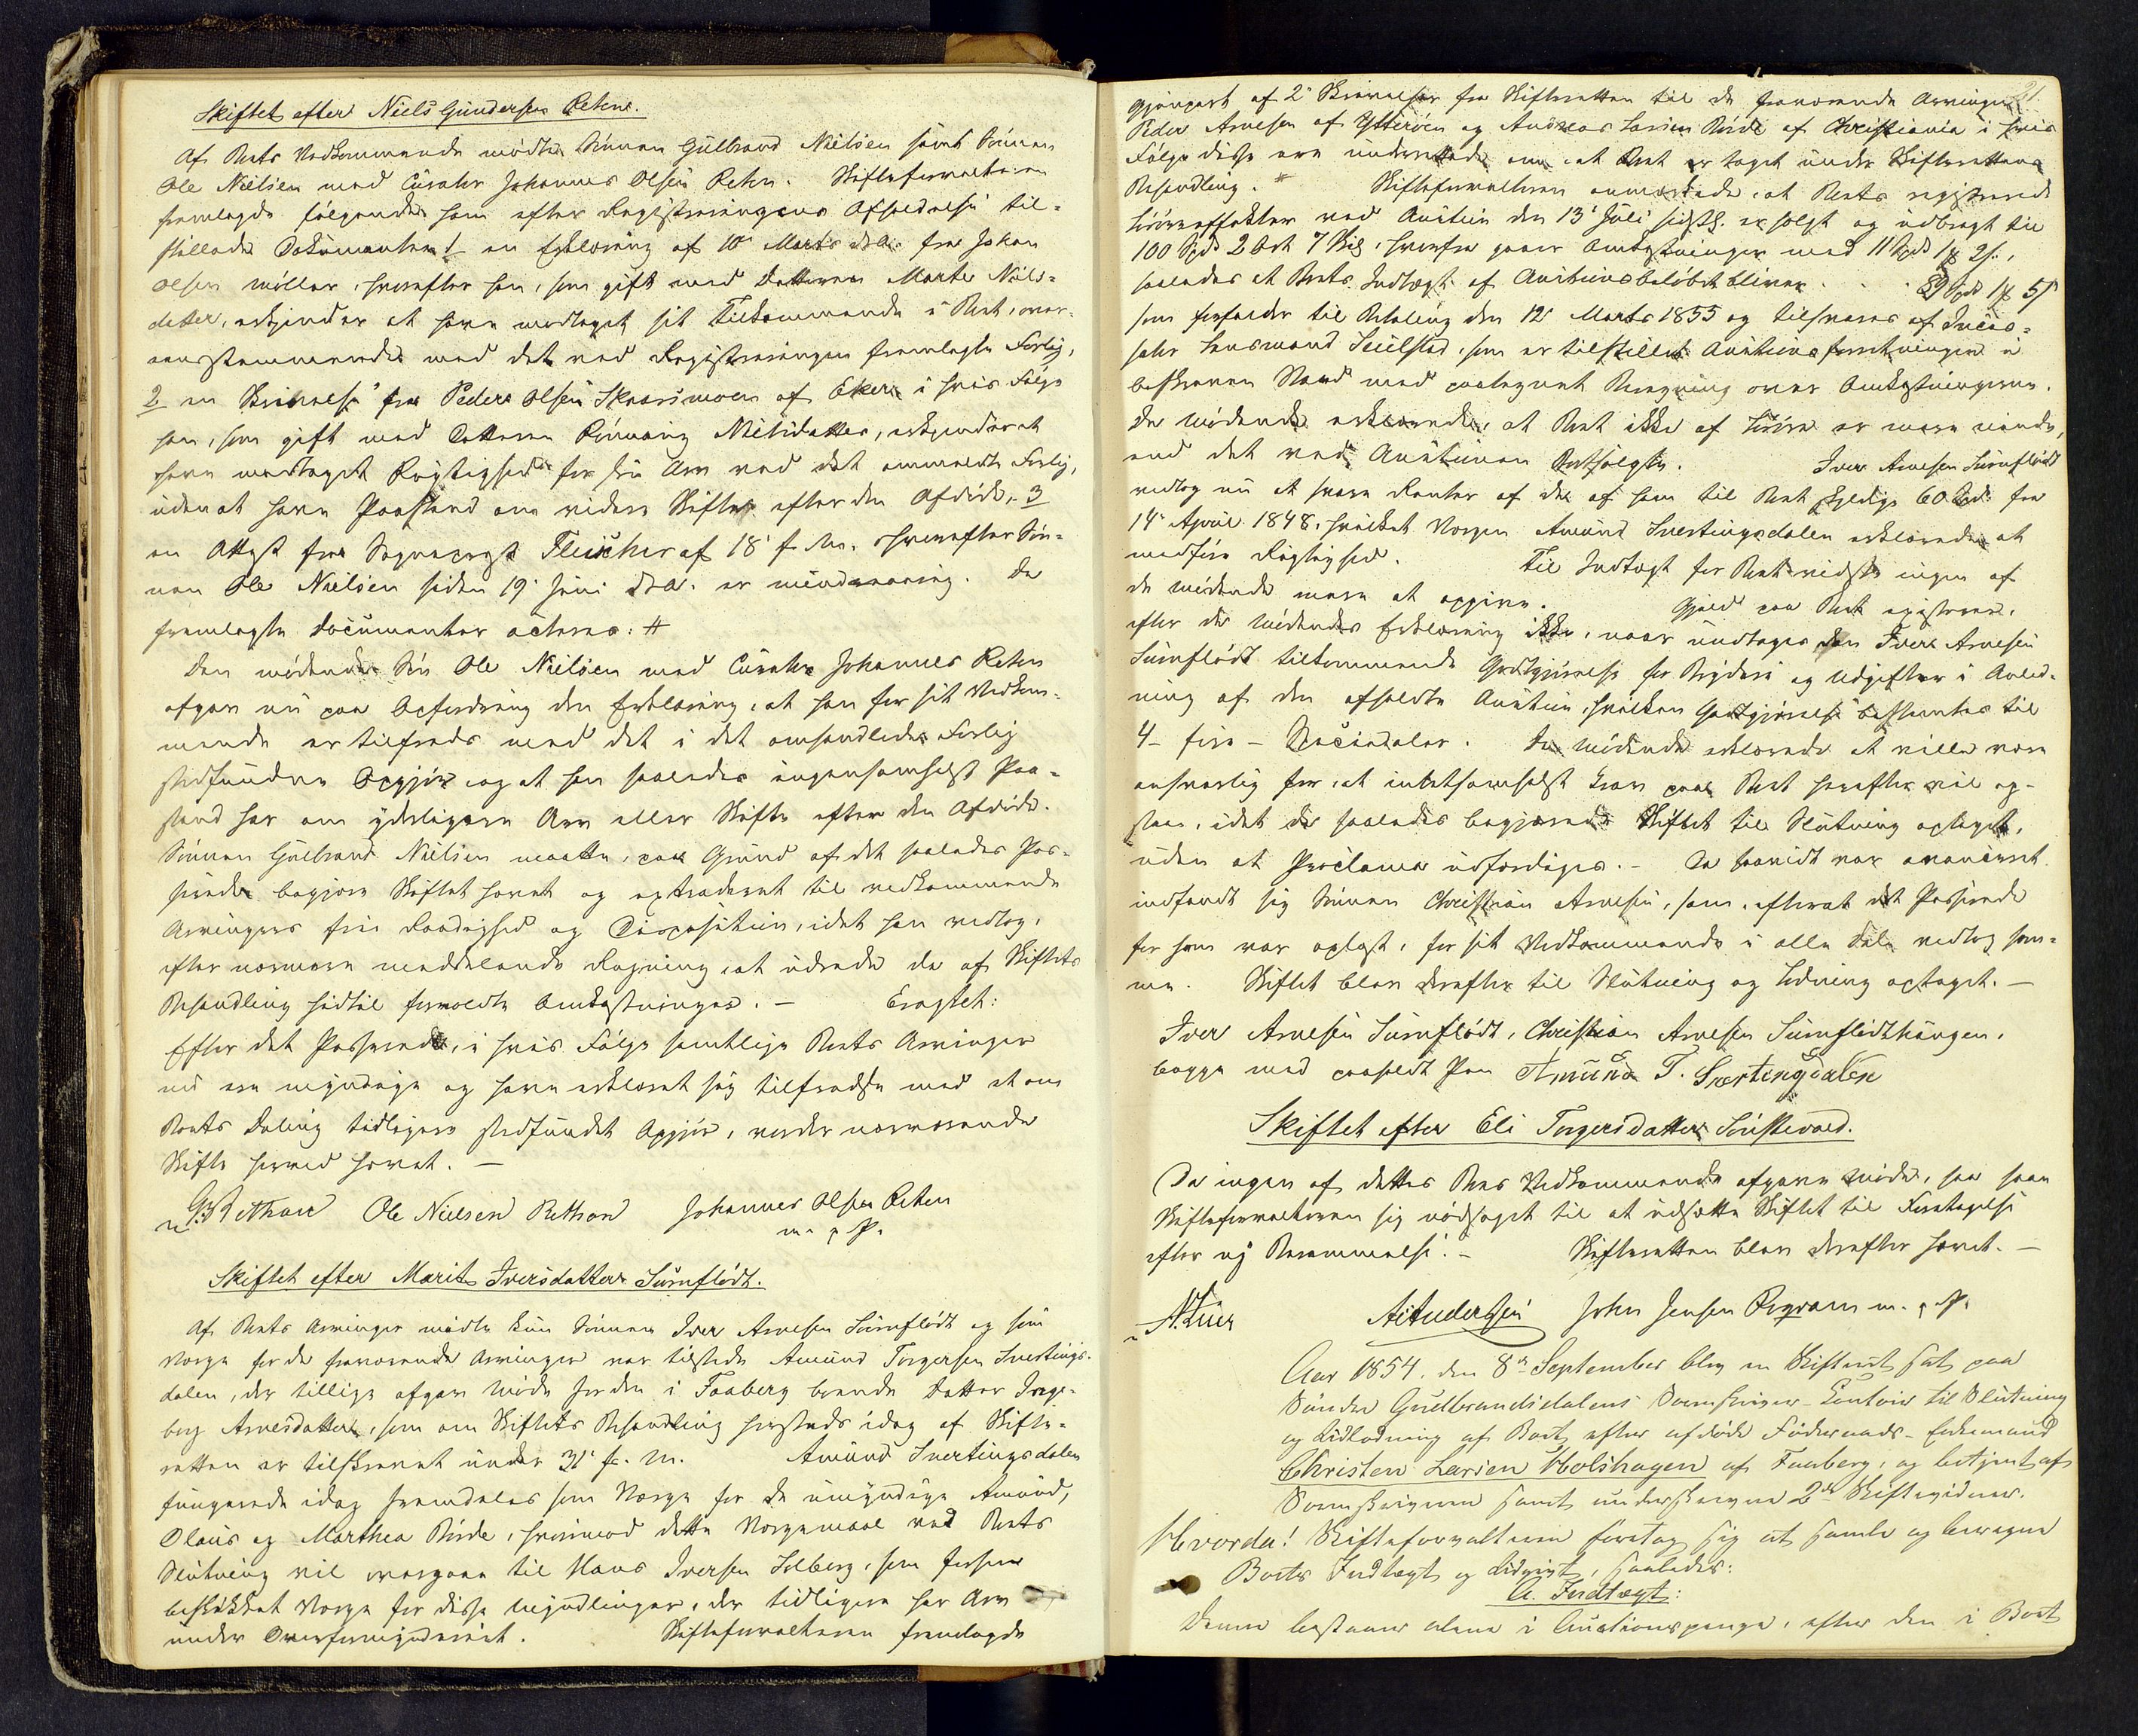 Skiftet efter Niels Gundersen Rehne.
Af Boets Vedkommende mødte Sønnen Gulbrand Nielsen samt Sønnen
Ole Nielsen med Curator Johannes Olsen Rehn. Skifteforvalteren
fremlagde følgende som efter Registreringens Afholdelse til-
stillede Dokumenter: 1 en Erklæring af 10de Marts d.A. fra Johan
Olsen Møller, hvorefter han, som gift med Datteren Marte Niels-
datter, erkjender at have modtaget sit Tilkommende i Boet, over-
eensstemmende med det ved Registreringen fremlagte Forlig,
2 en Skrivelse fra Peder Olsen af Eker i hvis Følge
han, som gift med Datteren Rønnaug Nielsdatter, erkjender at
have modtaget Rigtighed for sin Arv ved det anmeldte Forlig,
uden at have Paastand om videre Skifte efter den Afdøde, 3
en Attest fra Sogneprest Fleischer af 18 f. M. hvorefter Søn-
nen Ole Nielsen siden 19 Juni d.A. er mindreaarig. De
fremlagte Documenter acteres: #
Den mødende Søn Ole Nielsen med Curator Johannes Rehn
afgav nu paa Opfordring den Erklæring, at han for sit Vedkom-
mende er tilfreds med det i det omhandlede Forlig
stedfundne Opgjør og at han saaledes ingensomhelst Paa-
stand har om yderligere Arv eller Skifte efter den Afdøde.
Sønnen Gulbrand Nielsen maatte, paa Grund af det saaledes Pas-
serede begjære Skiftet hævet og extraderet til vedkommende
Arvingers frie Raadighed og Disposition, idet han vedtog,
efter nærmere meddelende Regning, at udrede de af Skiftets
Behandling hidtil forvoldte Omkostninger. — Eragtet:
Efter det Passerede, i hvis Følge samtlige Boets Arvinger
nu ere myndige og have erklæret sig tilfredse med et om
Boets Deling tidligere stedfundet Opgjør, vorder nærværende
Skifte herved hævet. —
G. N. Rethan Ole Nielsen Rethan Johannes Olsen Rehn
m. p. P.
Skiftet efter Marit Iversdatter Surnflødt.
Af Boets Arvinger mødte kun Sønnen Iver Arnesen Surnflødt og som
Værge for de fraværende Arvinger var tilstede Amund Torgersen Svertings-
dalen, der tillige afgav Møde for den i Faaberg boende Datter Inge-
borg Arnesdatter, som om Skiftets Behandling herstads idag af Skifte-
retten er tilskrevet under 31 f. M. Amund Svertingsdalen
fungerede idag fremdeles som Værge for de umyndige Amund,
Olaus og Marthea Røide, hvorimod dette Værgemaal ved Boets
Slutning vil overgaae til Hans Iversen Solberg, som forhen
beskikket Værge for disse Myndlinger, der tidligere har Arv
under Overformynderiet. Skifteforvalteren fremlagde
21.
Gjenpart af 2de Skrivelser fra Skifteretten til de fraværende Arvinger
Peder Arnesen af Ytterøen og Andreas Larsen Røide af Christiania i hvis
Følge disse ere underrettede om at Boet er taget under Skifterettens
Behandling. * Skifteforvalteren anmærkede at Boets registrerede
Løsøreeffekter ved Auction den 13 Juli sidstl. er solgt og udbragt til
100 Spd 2 Ort 7 Skil, hvorfra gaaer Omkostninger med 11 Spd 1 # 2 s.,
saaledes at Boets Indtægt af Auctionsbeløbet bliver . . . 89 Spd 1 # 5 s
som forfalder til Betaling den 12 Marts 1855 og tilsvares af Incas-
sator Lensmand Juulstad, som er tilstillet Auctionsforretningen i
beskreven Stand med paategnet Beregning over Omkostningerne.
De mødende erklærede, at Boet ikke af Løsøre er mere eiende,
end det ved Auctionen Bortsolgte. Iver Arnesen Surnflødt
vedtog nu at svare Renter af de af ham til Boet skyldige 60 Spd. fra
14 April 1848, hvilket Værgen Amund Svertingsdalen erklærede at
medføre Rigtighed. Til Indtægt for Boet vidste ingen af
de mødende mere at opgive. Gjeld paa Boet existerer,
efter de Mødendes Erklæring ikke, naar undtages den Iver Arnesen
Surnflødt tilkommende Godtgjørelse for Bryderi og Udgifter i Anled-
ning af den afholdte Auction, hvilken Godtgjørelse bestemtes til
4 – fire – Speciedaler. De mødende erklærede at ville være
ansvarlig for, at intetsomhelst Krav paa Boet herefter vil op-
staae, idet de saaledes begjærede Skiftet til Slutning optaget,
uden at Proclama udfærdiges. – Da saavidt var avanceret
indfandt sig Sønnen Christian Arnesen, som, efterat det Passerede
for ham var oplæst, for sit Vedkommende i alle Dele vedtog sam-
me. Skiftet blev derefter til Slutning og Lodning optaget. —
Iver Arnesen Surnflødt, Christian Arnesen Surnflødthaugen,
begge med paaholdt Pen Amund T. Svertingsdalen
Skiftet efter Eli Torgersdatter
Da ingen af dettes Boes Vedkommende afgave Møde, saa saae
Skifteforvalteren sig nødsaget til at udsætte Skiftet til Foretagelse
efter ny Berammelse. – Skifteretten blev derefter hævet. —
A. Andersen John Jensen m. p. P.
Aar 1854, den 8de September blev en Skifteret sat paa
Søndre Gudbrandsdalens Sorenskriver-Contoir til Slutning
og Udlodning af Boet efter afdøde Føderaads-Enkemand
Christen Larsen Holshagen af Faaberg, og betjent af
Sorenskriveren samt underskrevne 2de Skiftevidner.
Hvorda! Skifteforvalteren foretog sig at samle og beregne
Boets Indtægt og Udgivt, saaledes:
A. Indtægt:
Denne bestaaer alene i Auctionspenge, efter den i Boet